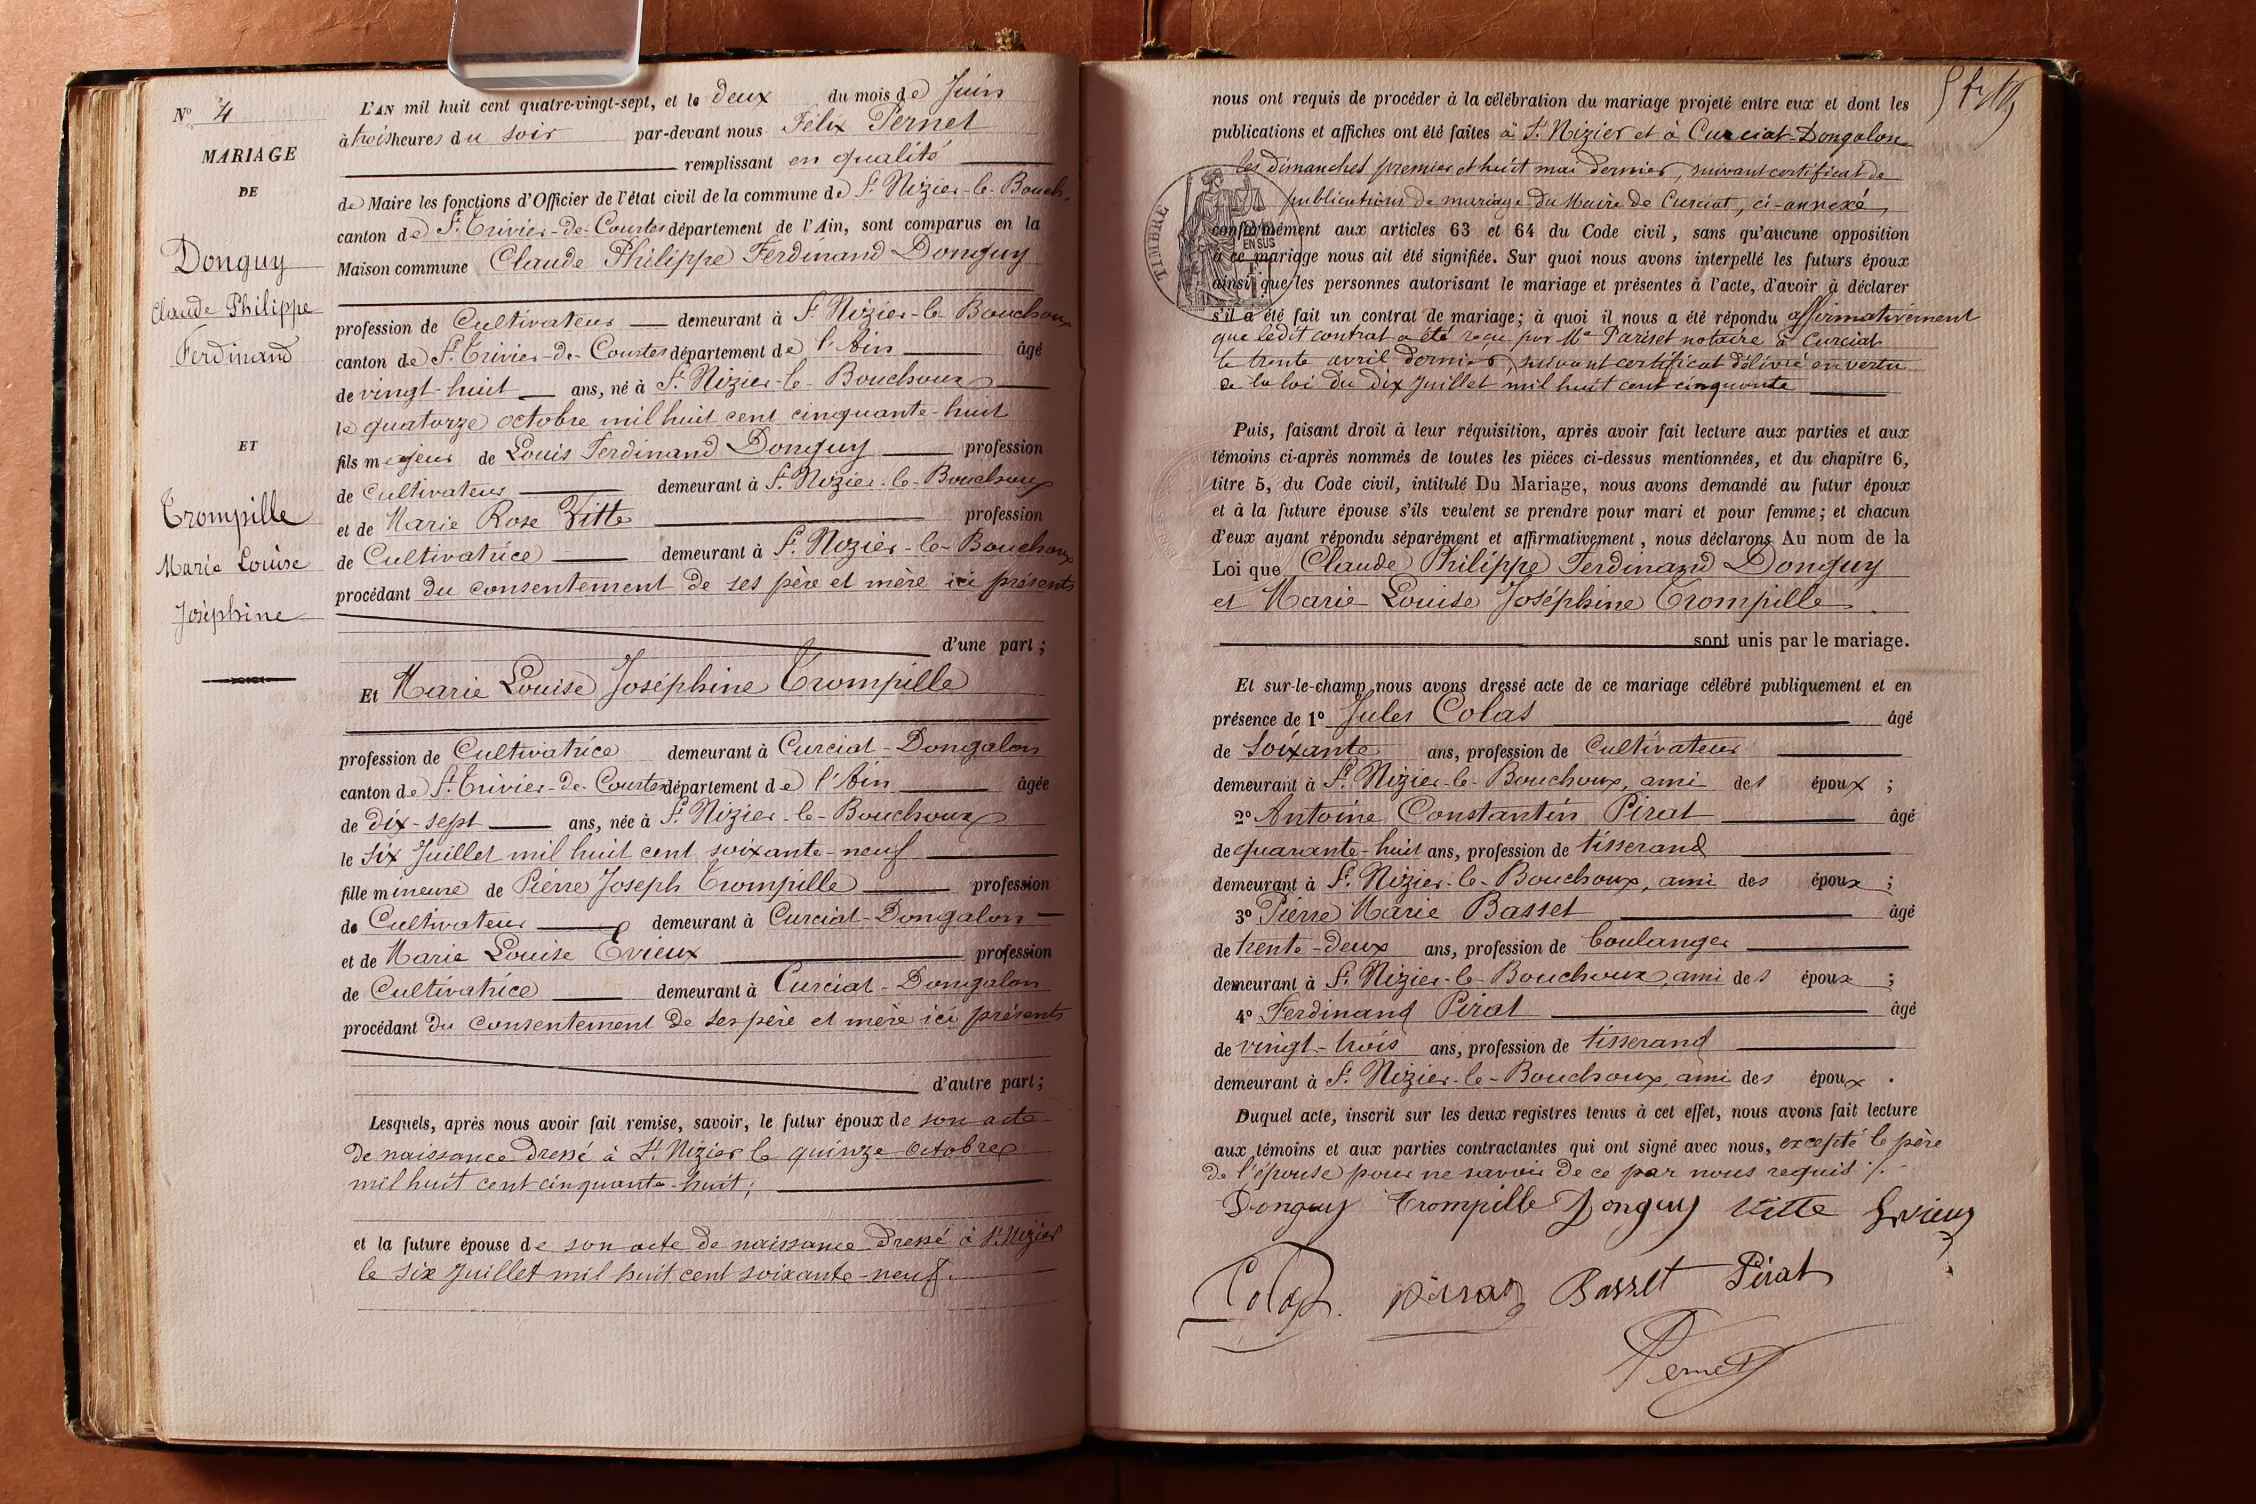 N° 4
MARIAGE
DE
Donguy
Claude Philippe
Ferdinand
ET
Trompille
Marie Louise
Joséphine
L'AN mil huit cent quatre-vingt-sept, et le deux du mois de Juin
à trois heures du soir par-devant nous Félix Pernet
remplissant en qualité
de Maire les fonctions d'Officier de l'état civil de la commune de St Nizier-le-Bouch.
canton de St Trivier-de-Courtes département de l'Ain, sont comparus en la
Maison commune Claude Philippe Ferdinand Donguy
profession de Cultivateur demeurant à St Nizier-le-Bouchoux
canton de St Trivier-de-Courtes département de l'Ain âgé
de vingt-huit ans, né à St Nizier-le-Bouchoux
le quatorze octobre mil huit cent cinquante-huit
fils majeur de Louis Ferdinand Donguy profession
de Cultivateur demeurant à St Nizier-le-Bouchoux
et de Marie Rose Vitte profession
de Cultivatrice demeurant à St Nizier-le-Bouchoux
procédant du consentement de ses père et mère ici présents
d'une part ;
Et Marie Louise Joséphine Trompille
profession de Cultivatrice demeurant à Curciat-Dongalon
canton de St Trivier-de-Courtes département de l'Ain âgée
de dix-sept ans, née à St Nizier-le-Bouchoux
le six Juillet mil huit cent soixante-neuf
fille mineure de Pierre Joseph Trompille profession
de Cultivateur demeurant à Curciat-Dongalon
et de Marie Louise Evieux profession
de Cultivatrice demeurant à Curciat-Dongalon
procédant du consentement de ses père et mère ici présents
d'autre part ;
Lesquels, après nous avoir fait remise, savoir, le futur époux de son acte
de naissance dressé à St Nizier le quinze octobre
mil huit cent cinquante-huit ;
et la future épouse de son acte de naissance dressé à St Nizier
le six Juillet mil huit cent soixante-neuf.
nous ont requis de procéder à la célébration du mariage projeté entre eux et dont les
publications et affiches ont été faites à St Nizier et à Curciat-Dongalon
les dimanches premier et huit mai dernier, suivant certificat de
publications de mariage du Maire de Curciat, ci-annexé,
TIMBRE
EN SUS
conformément aux articles 63 et 64 du Code civil, sans qu'aucune opposition
à ce mariage nous ait été signifiée. Sur quoi nous avons interpellé les futurs époux
ainsi que les personnes autorisant le mariage et présentes à l'acte, d'avoir à déclarer
s'il a été fait un contrat de mariage ; à quoi il nous a été répondu affirmativement
que ledit contrat a été reçu par Me Pariset notaire à Curciat
le trente avril dernier, suivant certificat délivré en vertu
de la loi du dix Juillet mil huit cent cinquante
Puis, faisant droit à leur réquisition, après avoir fait lecture aux parties et aux
témoins ci-après nommés de toutes les pièces ci-dessus mentionnées, et du chapitre 6,
titre 5, du Code civil, intitulé Du Mariage, nous avons demandé au futur époux
et à la future épouse s'ils veulent se prendre pour mari et pour femme ; et chacun
d'eux ayant répondu séparément et affirmativement, nous déclarons Au nom de la
Loi que Claude Philippe Ferdinand Donguy
et Marie Louise Joséphine Trompille
sont unis par le mariage.
Et sur-le-champ nous avons dressé acte de ce mariage célébré publiquement et en
présence de 1° Jules Colas âgé
de soixante ans, profession de Cultivateur
demeurant à St Nizier-le-Bouchoux, ami des époux ;
2° Antoine Constantin Pirat âgé
de quarante-huit ans, profession de tisserand
demeurant à St Nizier-le-Bouchoux, ami des époux ;
3° Pierre Marie Basset âgé
de trente-deux ans, profession de boulanger
demeurant à St Nizier-le-Bouchoux, ami des époux ;
4° Ferdinand Pirat âgé
de vingt-trois ans, profession de tisserand
demeurant à St Nizier-le-Bouchoux, ami des époux .
Duquel acte, inscrit sur les deux registres tenus à cet effet, nous avons fait lecture
aux témoins et aux parties contractantes qui ont signé avec nous, excepté le père
de l'épouse pour ne savoir de ce par nous requis ./.
Donguy Trompille Donguy Vitte Evieux
Colas Pirat Basset Pirat
Pernet